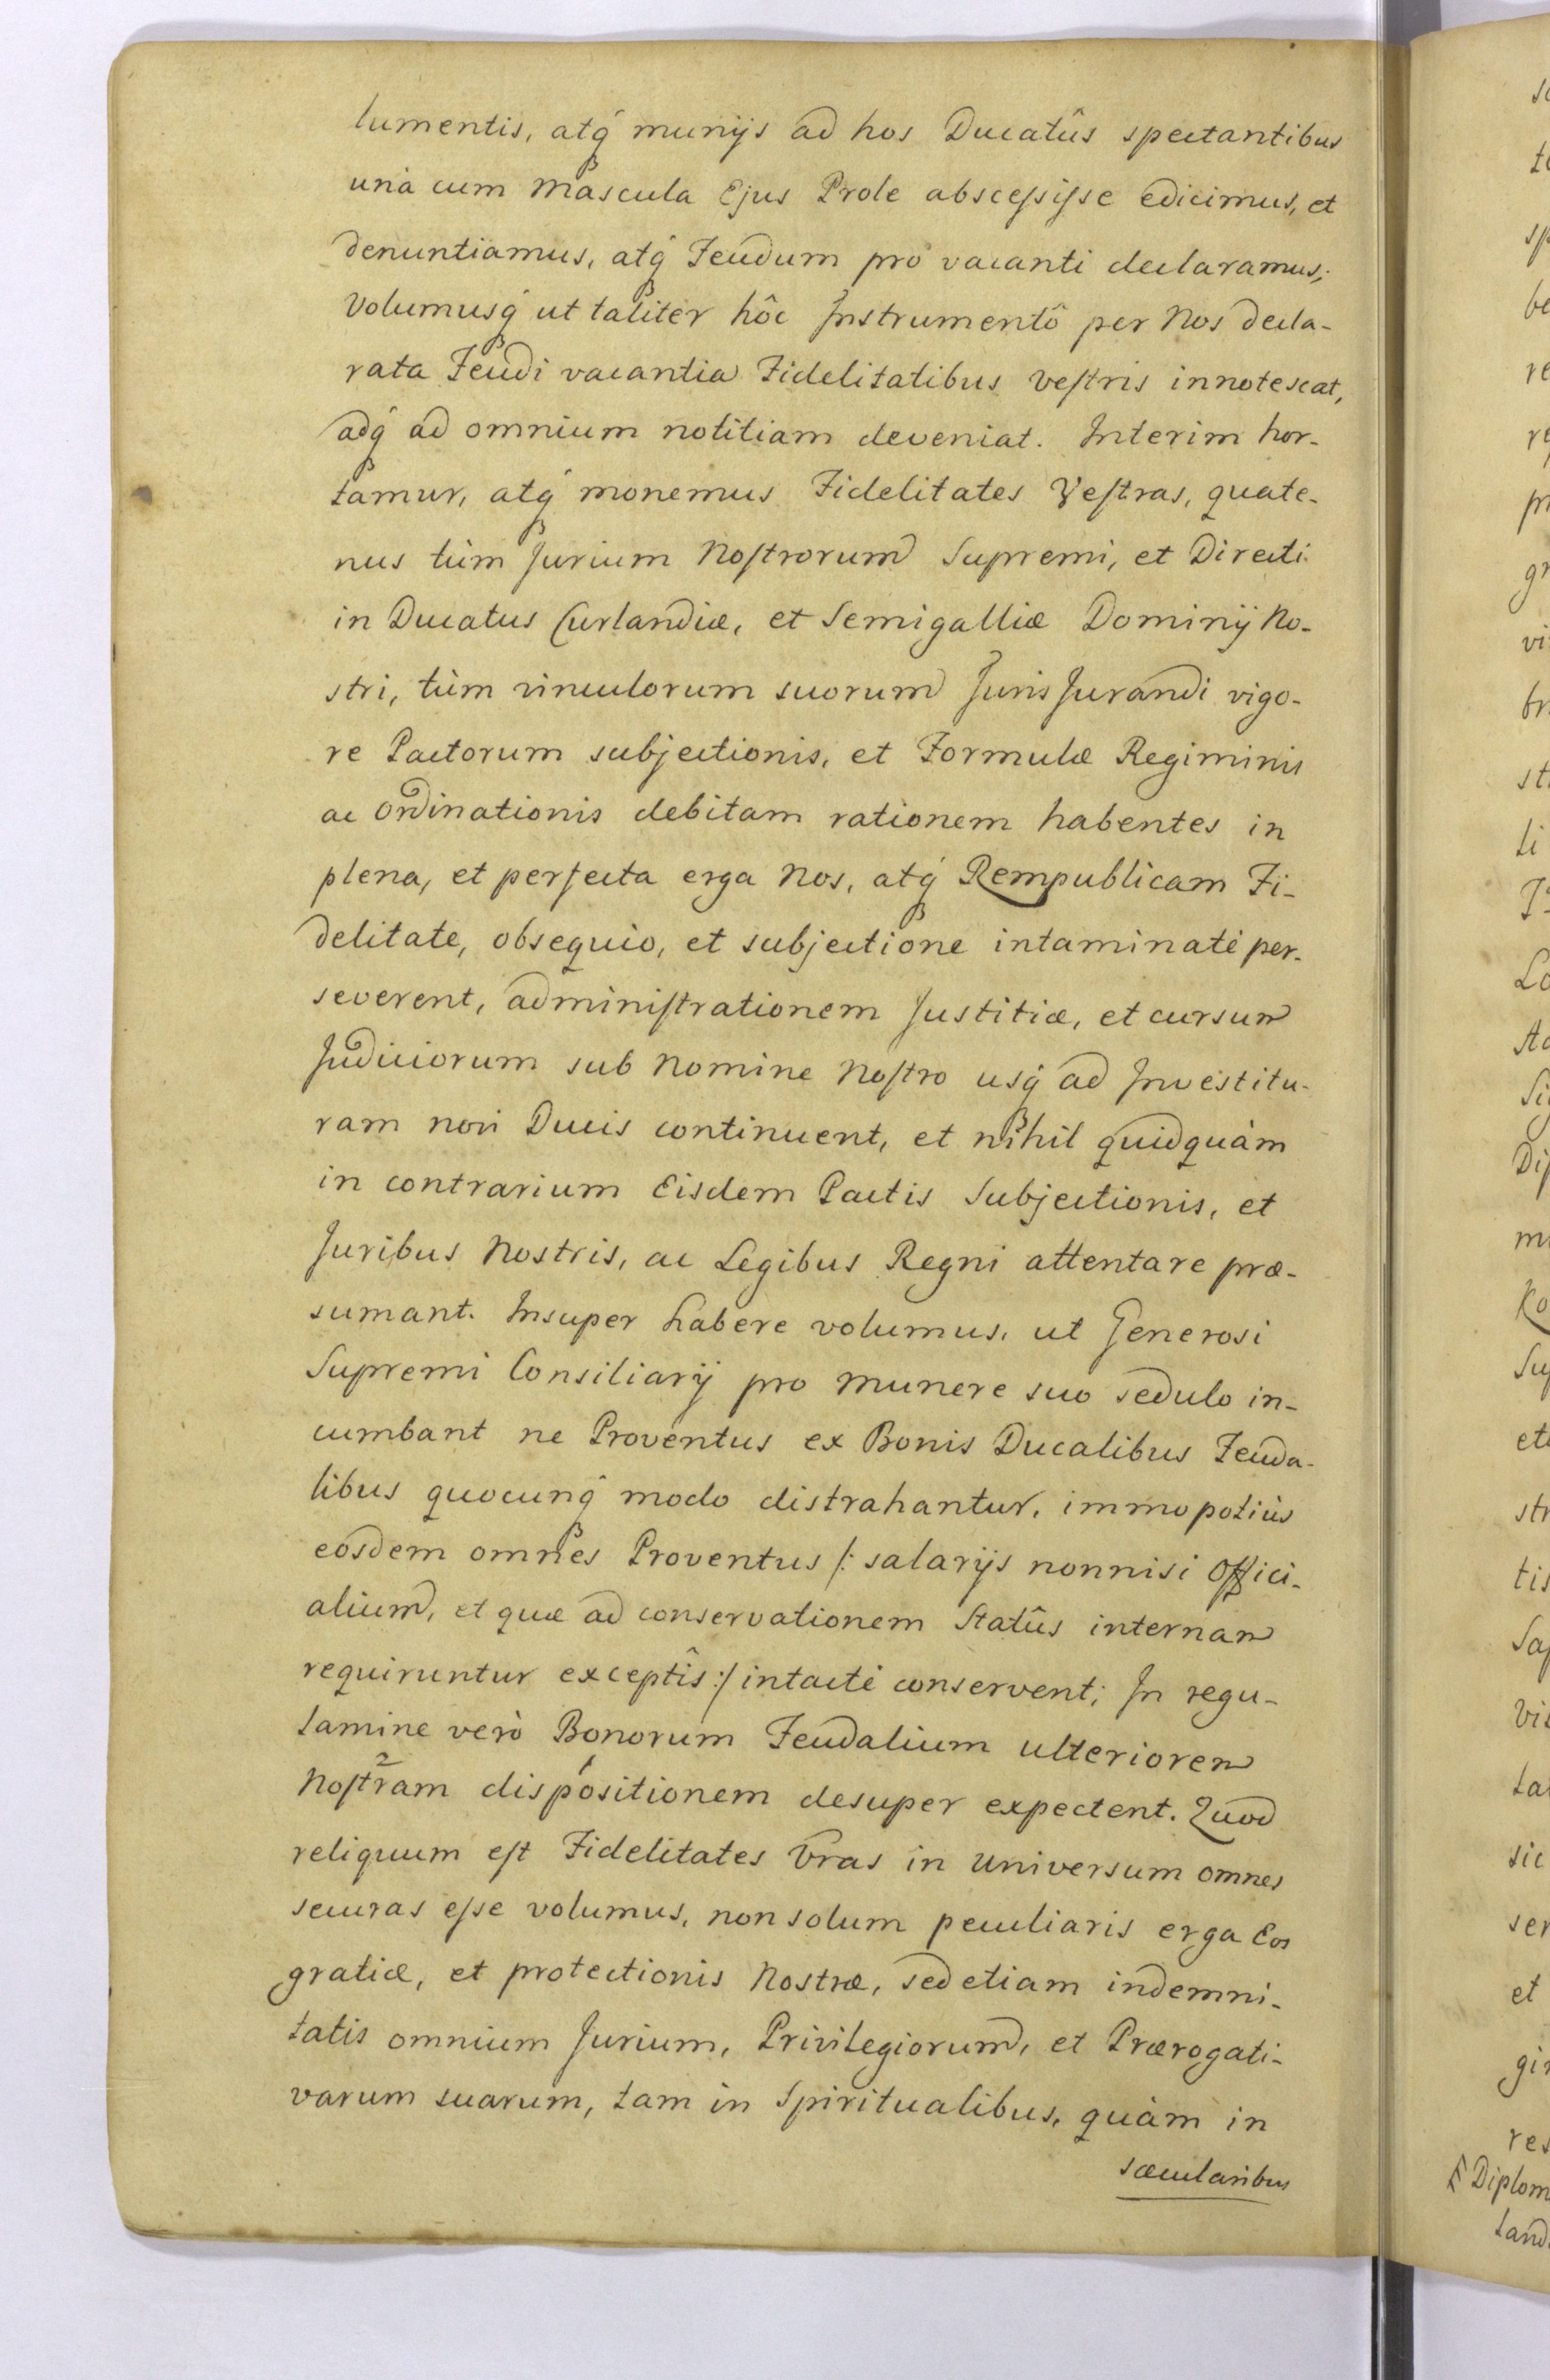 lumentis, atq́ munijs ad hos Ducatûs spectantibus
unà cum Mascula Ejus Prole abscessisse edicimus, et
denuntiamus, atq́ Feudum pro vacanti declaramus;
Volumusq́ ut taliter hôc Instrumentô per Nos decla-
rata Feudi vacantia Fidelitatibus Vestris innotescat,
adq́ ad omnium notitiam deveniat. Interim hor-
tamur, atq́ monemus Fidelitates Vestras, quate-
nus tùm Jurium Nostrorum Supremi, et Directi
in Ducatus Curlandiæ, et Semigalliæ Dominij No-
stri, tùm vinculorum suorum Juris Jurandi vigo-
re Pactorum subjectionis, et Formulæ Regiminis
ac Ordinationis debitam rationem habentes in
plena, et perfecta erga Nos, atq́ Rempublicam Fi-
delitate, obsequio, et subjectione intaminatè per-
severent, administrationem Justitiæ, et cursum
Judiciorum sub Nomine Nostro usq́ ad Investitu-
ram novi Ducis continuent, et nihil quidquàm
in contrarium Eisdem Pactis Subjectionis, et
Juribus Nostris, ac Legibus Regni attentare præ-
sumant. Insuper habere volumus, ut Generosi
Supremi Consiliarij pro munere suo sedulo in-
cumbant ne Proventus ex Bonis Ducalibus Feuda-
libus quocunq́ modo distrahantur, immo potiùs
eosdem omnes Proventus /: salarijs nonnisi Offici-
alium, et quæ ad conservationem Statûs internam
requiruntur exceptîs :/ intactè conservent; In regu-
lamine verò Bonorum Feudalium ulteriorem
Nostram dispositionem desuper expectent. Quod
reliquum est Fidelitates Vras in universum omnes
securas esse volumus, non solum peculiaris erga Eos
gratiæ, et protectionis Nostræ, sed etiam indemni-
tatis omnium Jurium, Privilegiorum, et Prærogati-
varum suarum, tam in Spiritualibus, quàm in
sæcularibus